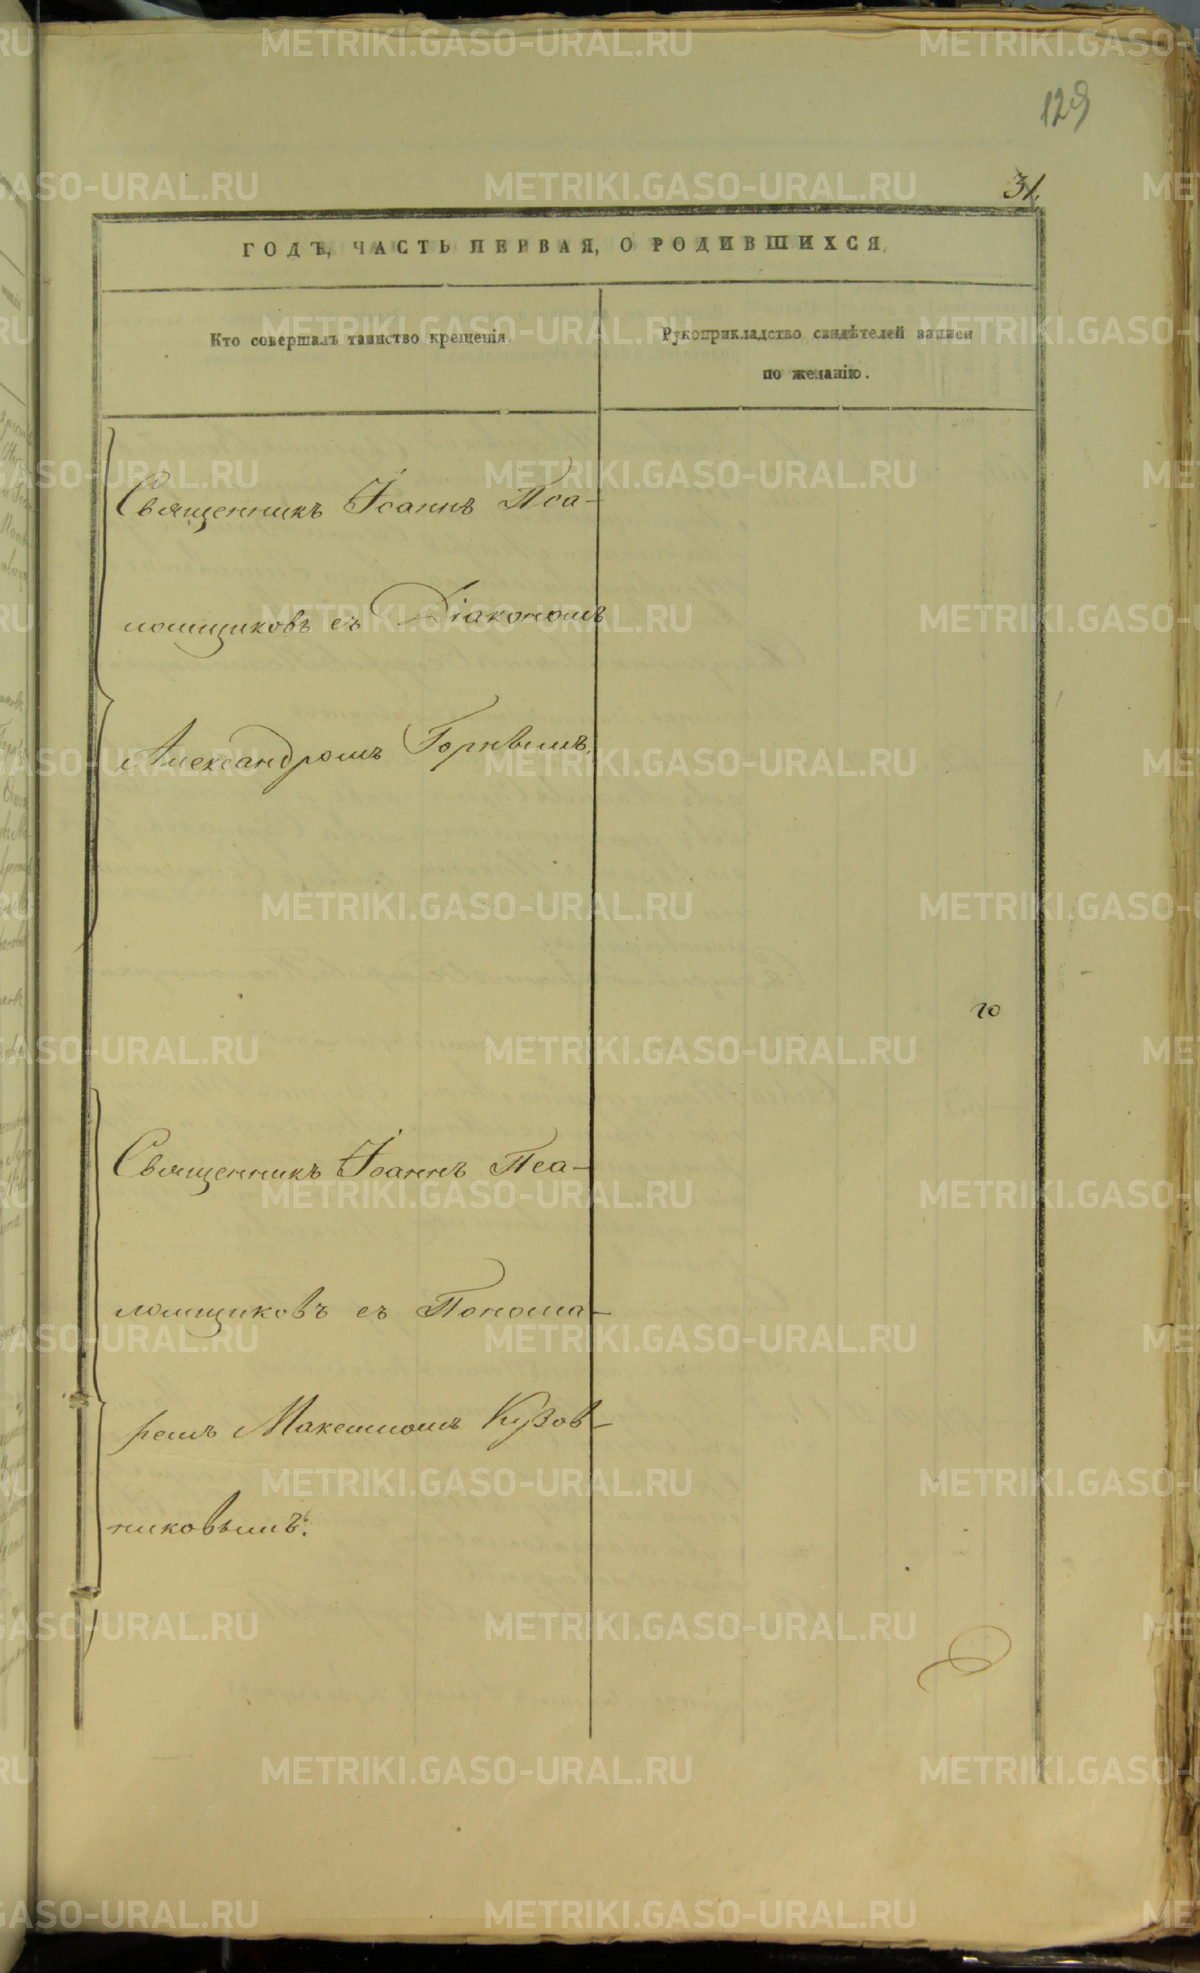 129
31.
ГОДЪ, ЧАСТЬ ПЕРВАЯ, О РОДИВШИХСЯ,
Кто совершалъ таинство крещенія.
Рукоприкладство свидѣтелей записи
по желанію.
Священникъ Іоаннъ Пса-
ломщиковъ съ Діакономъ
Александромъ
го
Священникъ Іоаннъ Пса-
ломщиковъ съ Понома-
ремъ Максимомъ Кузов-
никовымъ.
METRIKI.GASO-URAL.RU